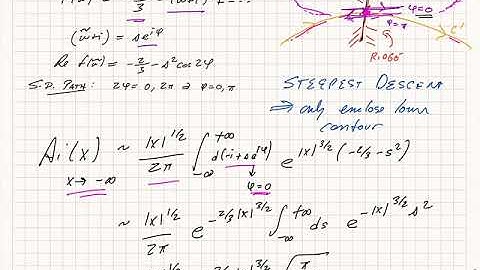 (w̃+i) = se^{iφ}
Re f(w̃) = -2/3 - s² cos2φ
S.D. PATH : 2φ = 0, 2π ⊇ φ=0, π
φ=0
φ=π
C'
RIDGE
STEEPEST DESCENT
⇒ only enclose lower
contour
Ai(x) ~ |x|^{1/2}/2π ∫_{-∞}^{+∞} d(-i+se^{iφ}) e^{|x|^{3/2}(-2/3-s²)}
x→ -∞
φ=0
~ |x|^{1/2}/2π e^{-2/3|x|^{3/2}} ∫_{-∞}^{+∞} ds e^{-|x|^{3/2}s²}